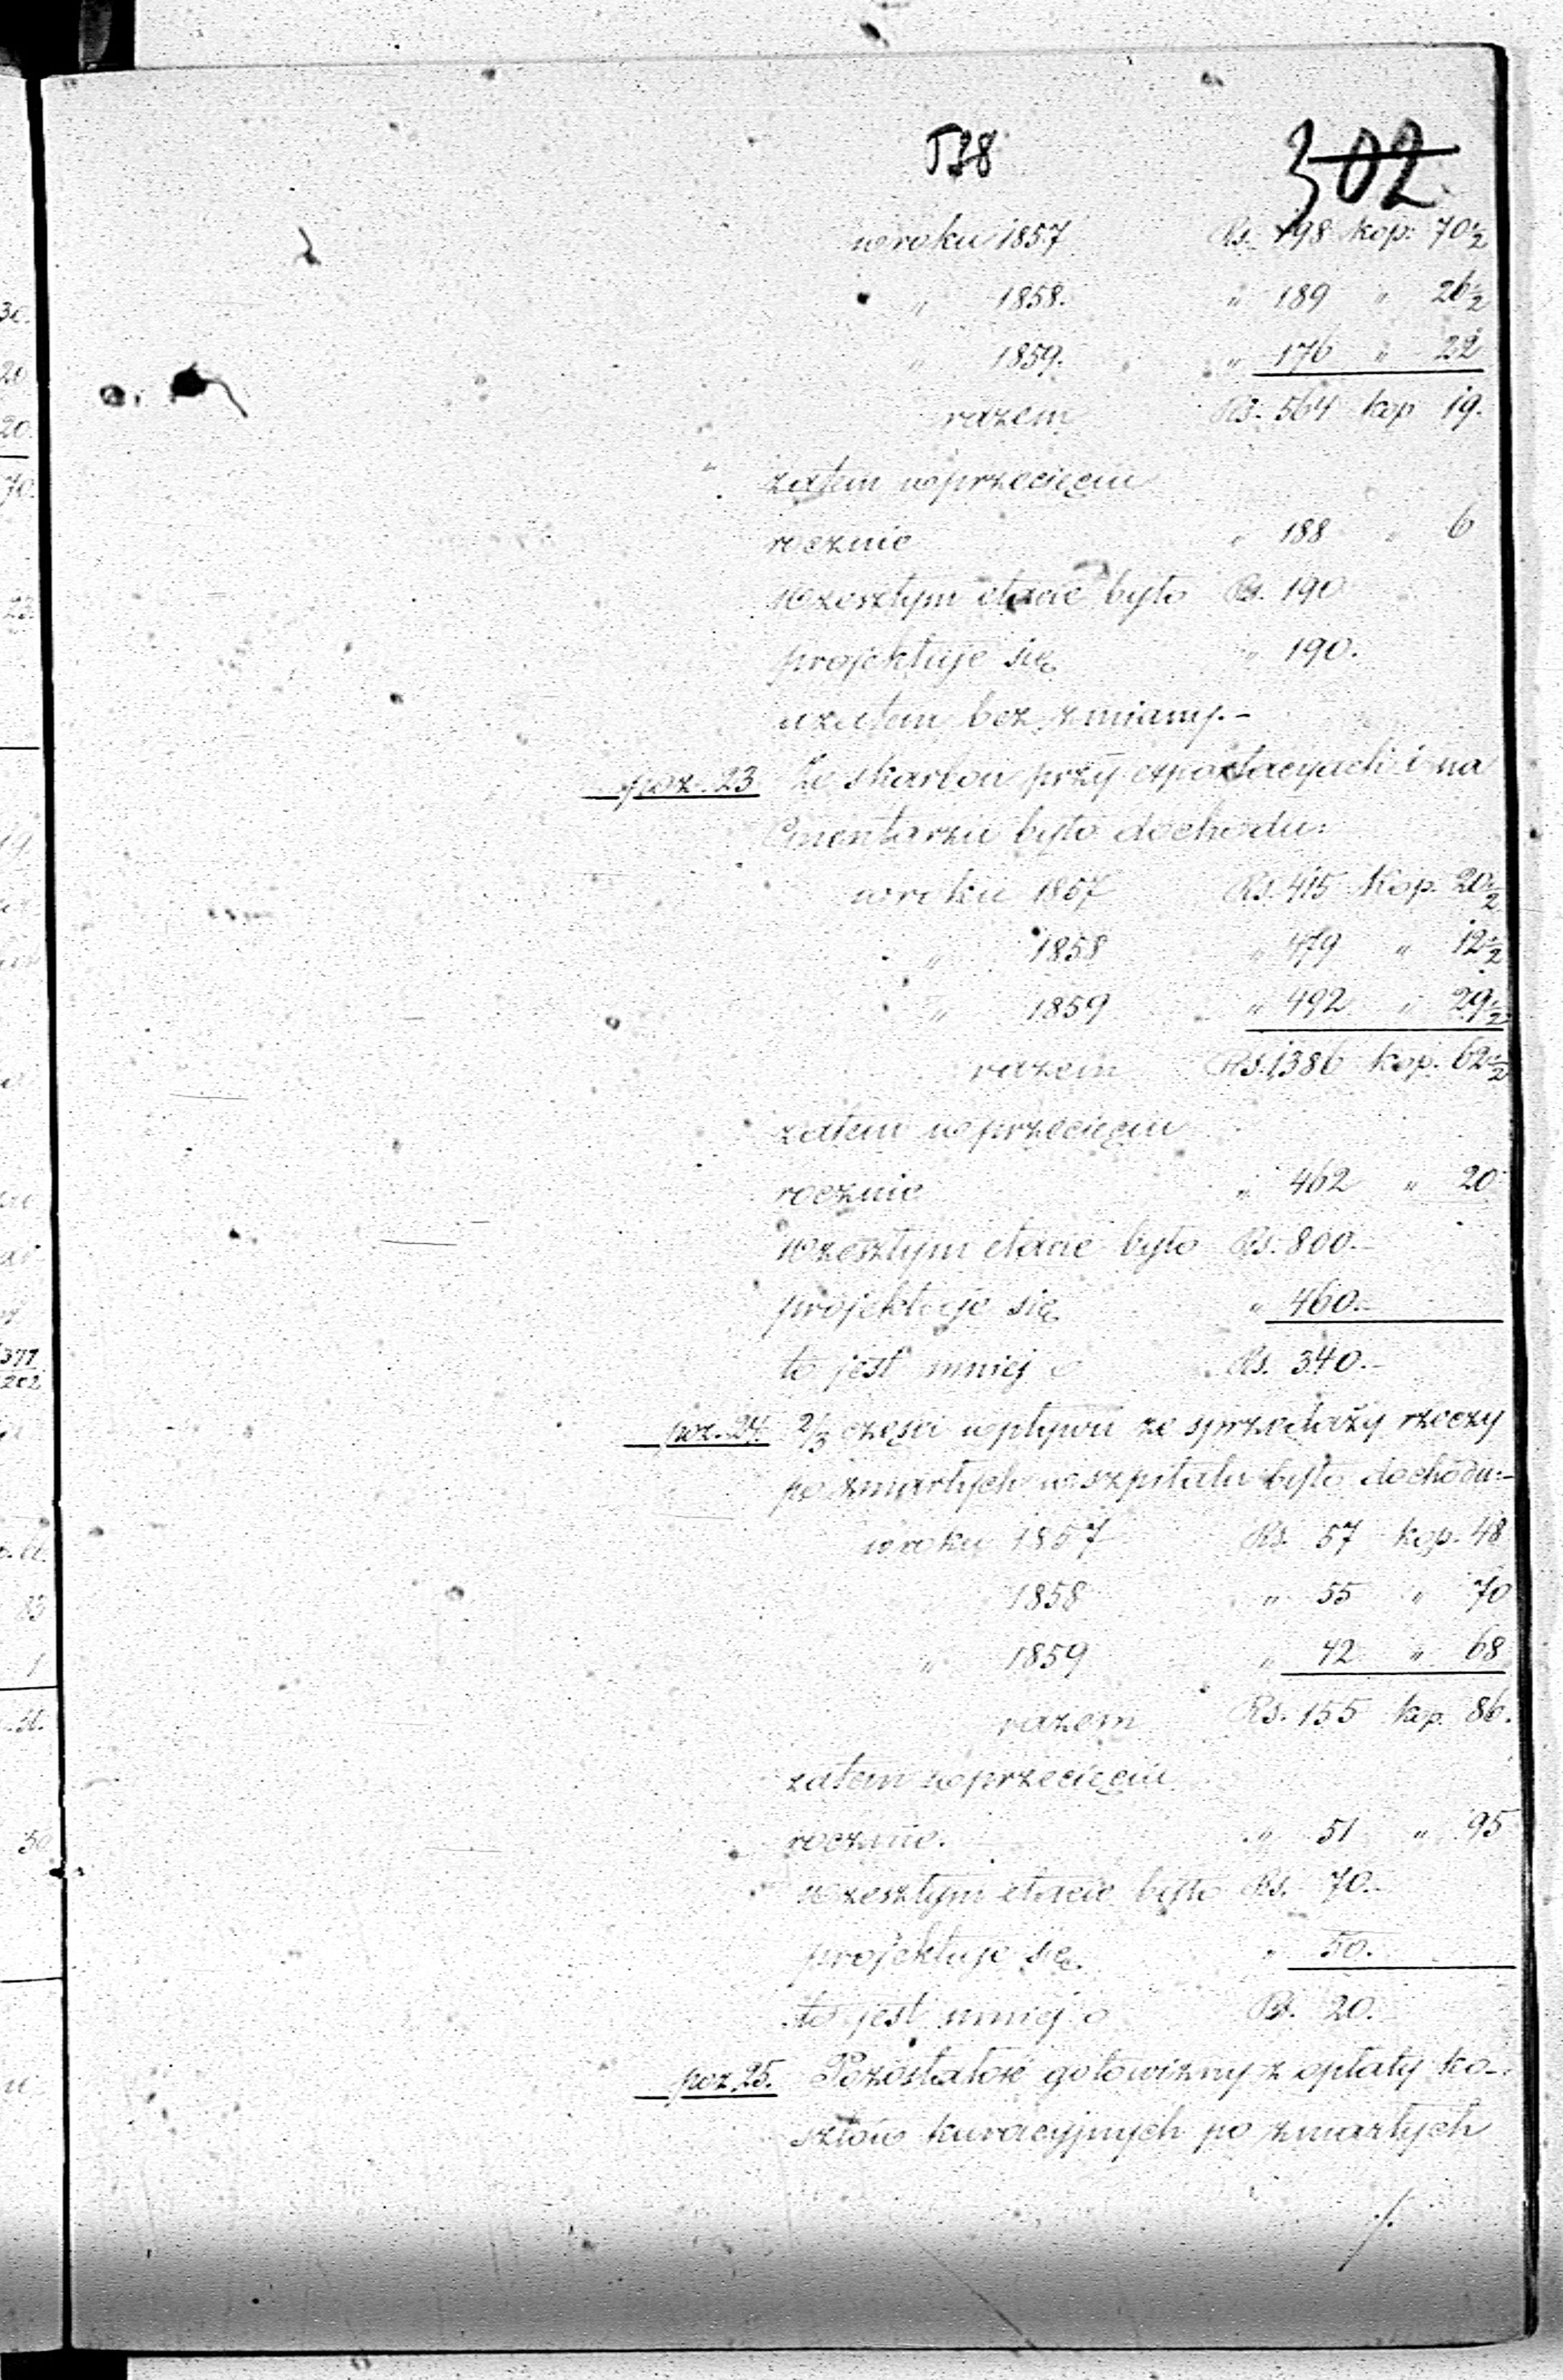 538
302
w roku 1857 Rs. 198 kop: 70½
„ 1858. „ 189 „ 26½
„ 1859. „ 176 „ 22
razem Rs. 564 kop 19.
zatem w przecięciu
rocznie „ 188 „ 6
w zeszłym etacie było Rs. 190
projektuje się „ 190.
a zatem bez zmiany.-
poz. 23 Ze skarbon przy exportacyach i na
Cmentarzu było dochodu:
w roku 1857 Rs. 415 Kop. 20½
„ 1858 „ 479 „ 12½
„ 1859 „ 492 „ 29½
razem Rs. 1386 kop. 62½
zatem w przecięciu
rocznie „ 462 „ 20
w zeszłym etacie było Rs. 800.-
projektuje się „ 460.-
to jest mniej o Rs. 340.-
poz. 24. 2/3 części wpływu ze sprzedaży rzeczy
po zmarłych w szpitalu było dochodu:-
w roku 1857 Rs. 57 kop. 48
1858 „ 55 „ 70
„ 1859 „ 42 „ 68
razem Rs. 155 kop. 86.
zatem w przecięciu
rocznie. „ 51 „ 95
w zeszłym etacie było Rs. 70.-
projektuje się „ 50.
to jest mniej o Rs. 20.
poz. 25. Pozostałość gotowizny z opłaty ko-
sztów kuracyjnych po zmarłych
./.